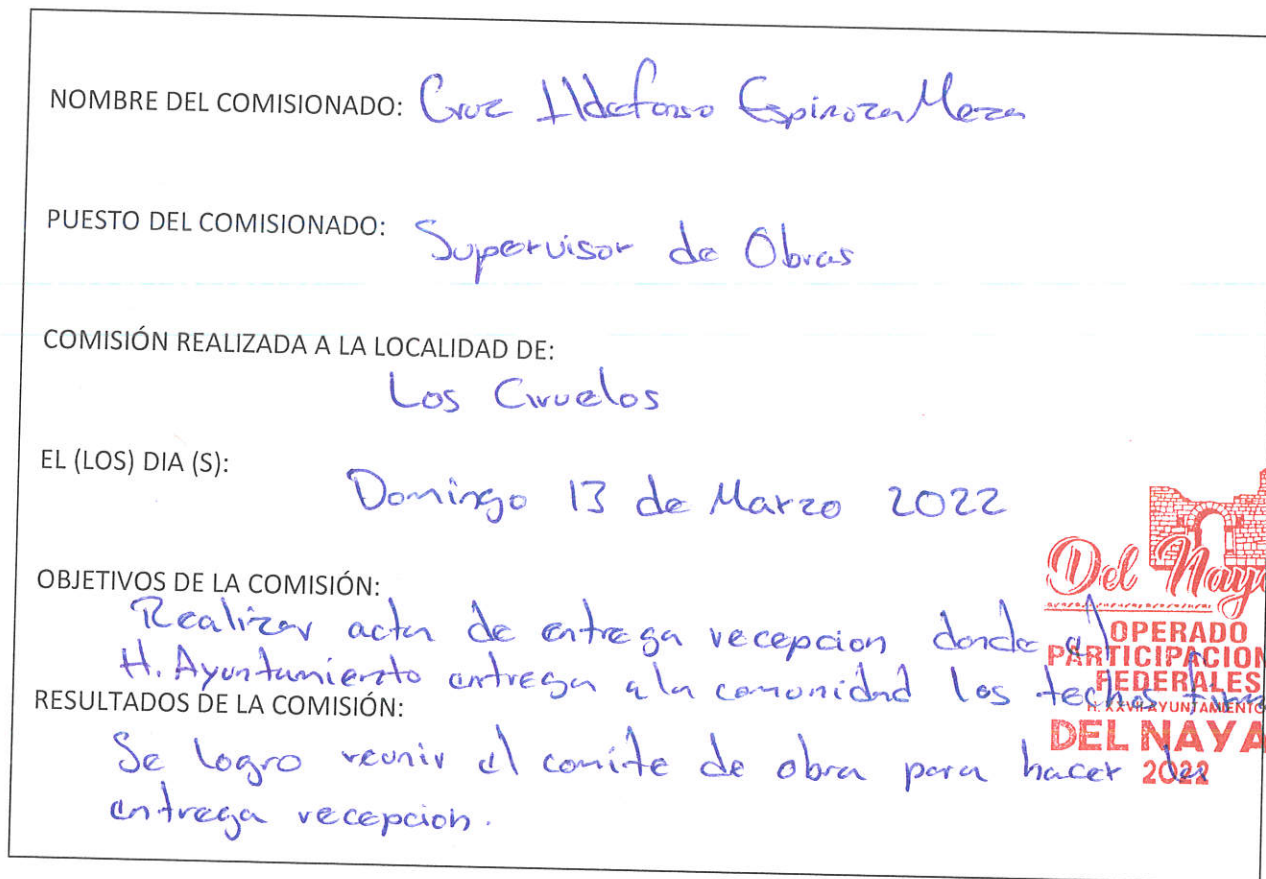 NOMBRE DEL COMISIONADO: Cruz Ildefonso Espinoza Meza
PUESTO DEL COMISIONADO: Supervisor de Obras
COMISIÓN REALIZADA A LA LOCALIDAD DE:
Los Ciruelos
EL (LOS) DIA (S):
Domingo 13 de Marzo 2022
OBJETIVOS DE LA COMISIÓN:
Realizar acta de entrega recepcion donde el
H. Ayuntamiento entrega a la comunidad los techos
RESULTADOS DE LA COMISIÓN:
Se logro reunir el comite de obra para hacer la
entrega recepcion.
Del Naya
OPERADO
PARTICIPACION
FEDERALES
H. XXVII AYUNTAMIENTO
DEL NAYA
2022